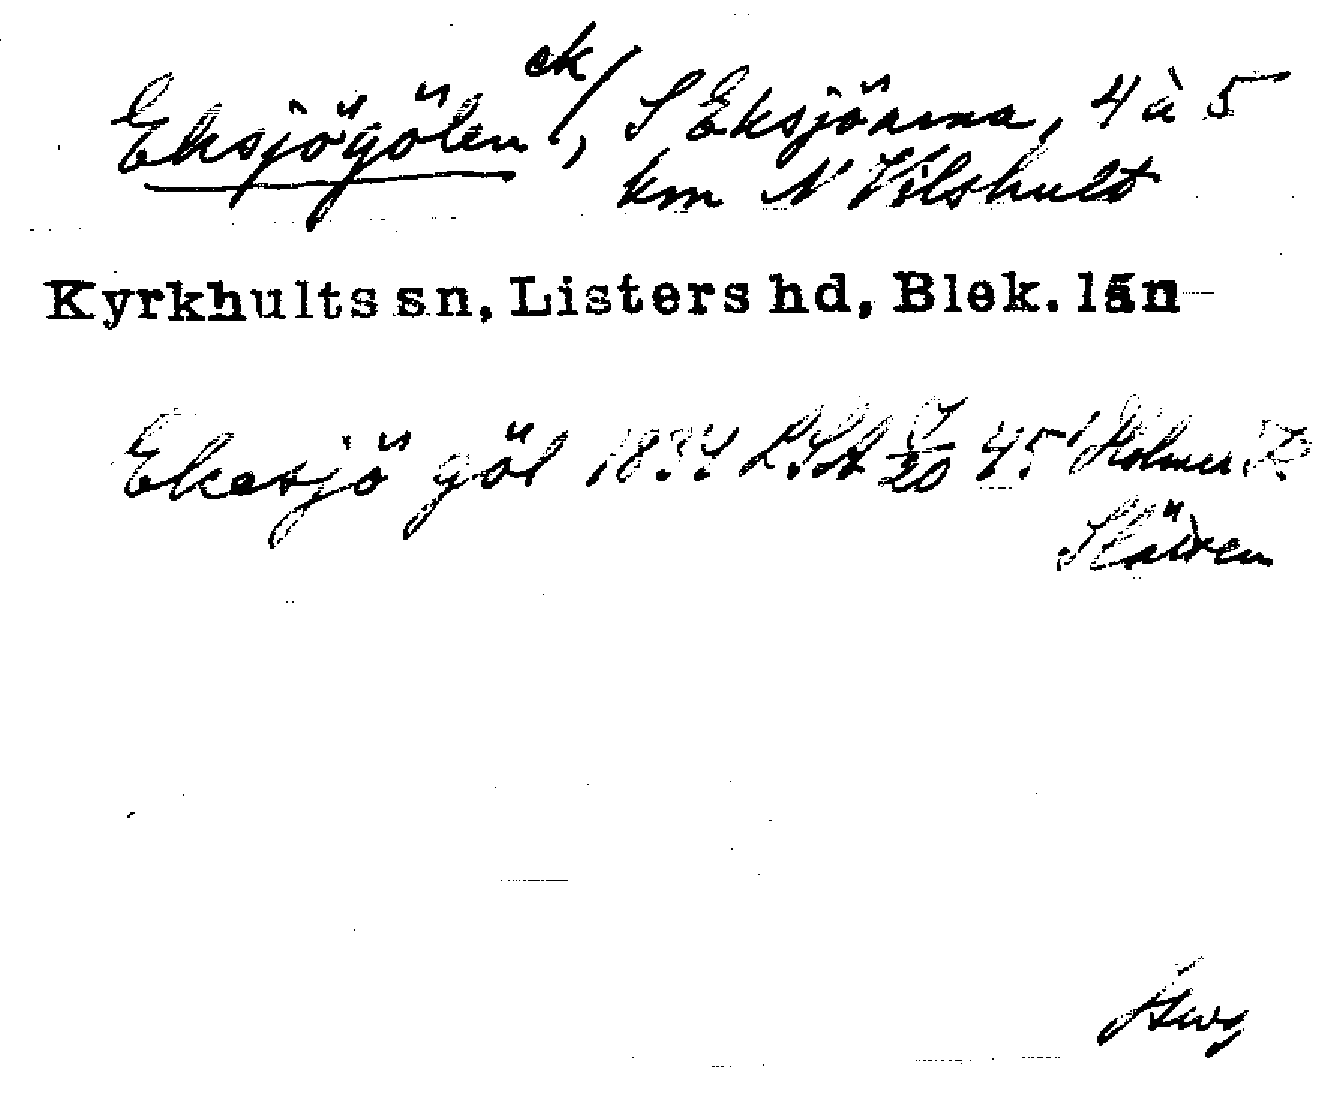 Eksjögölen ek/, S Eksjöarna, 4 à 5
km N Vilshult
Kyrkhults sn, Listers hd, Blek. län
Ekesjö göl 1834 LSA 20 45 Holmer